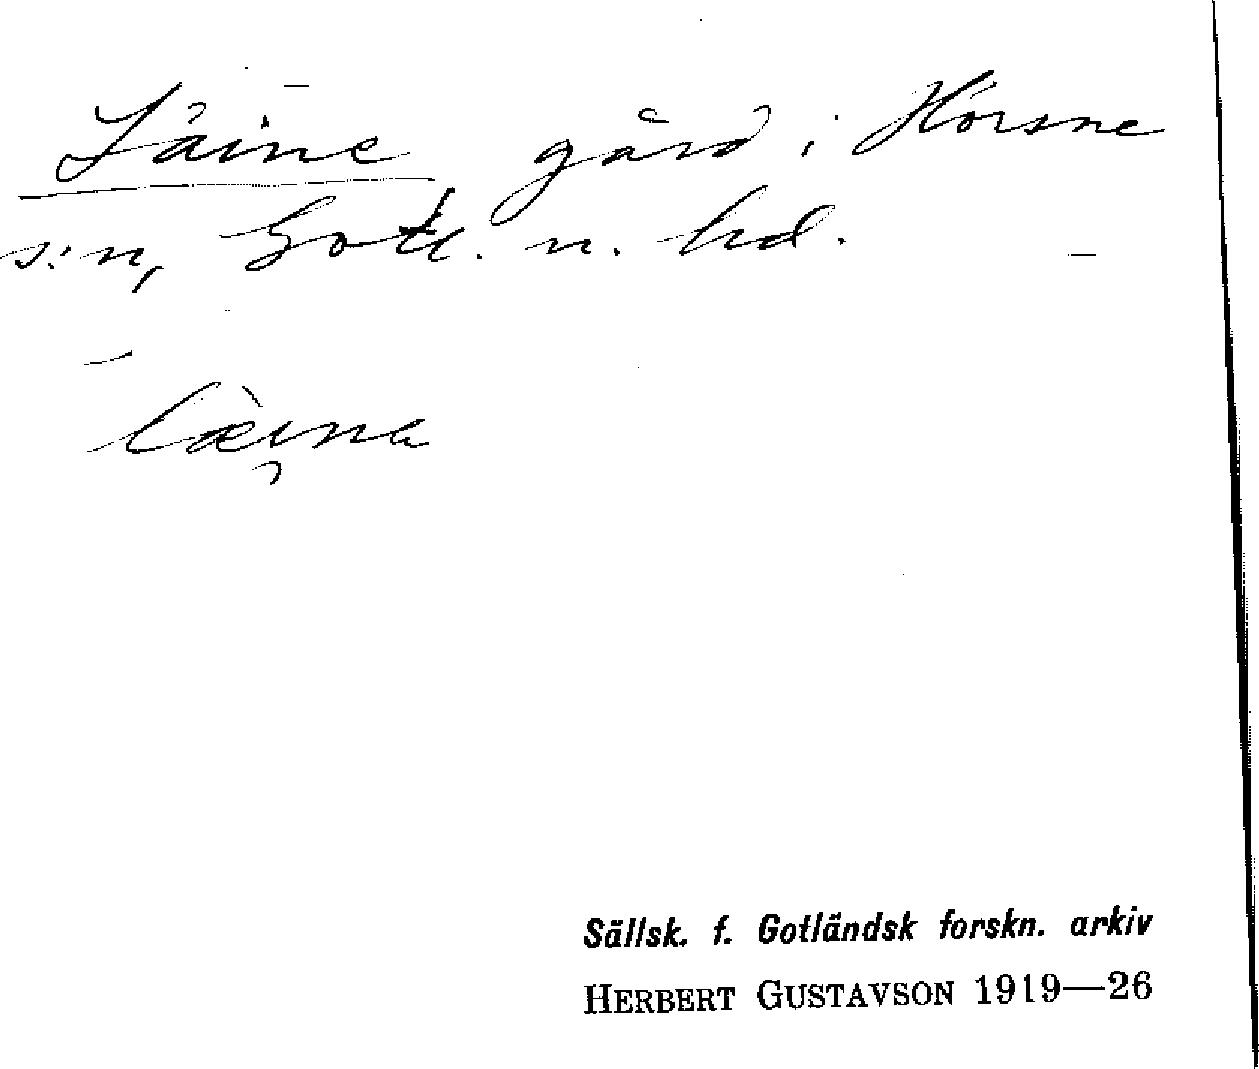 Laine gård i Hörsne
s:n, Gotl. n. hd.
Sällsk. f. Gotländsk forskn. arkiv
HERBERT GUSTAVSON 1919—26